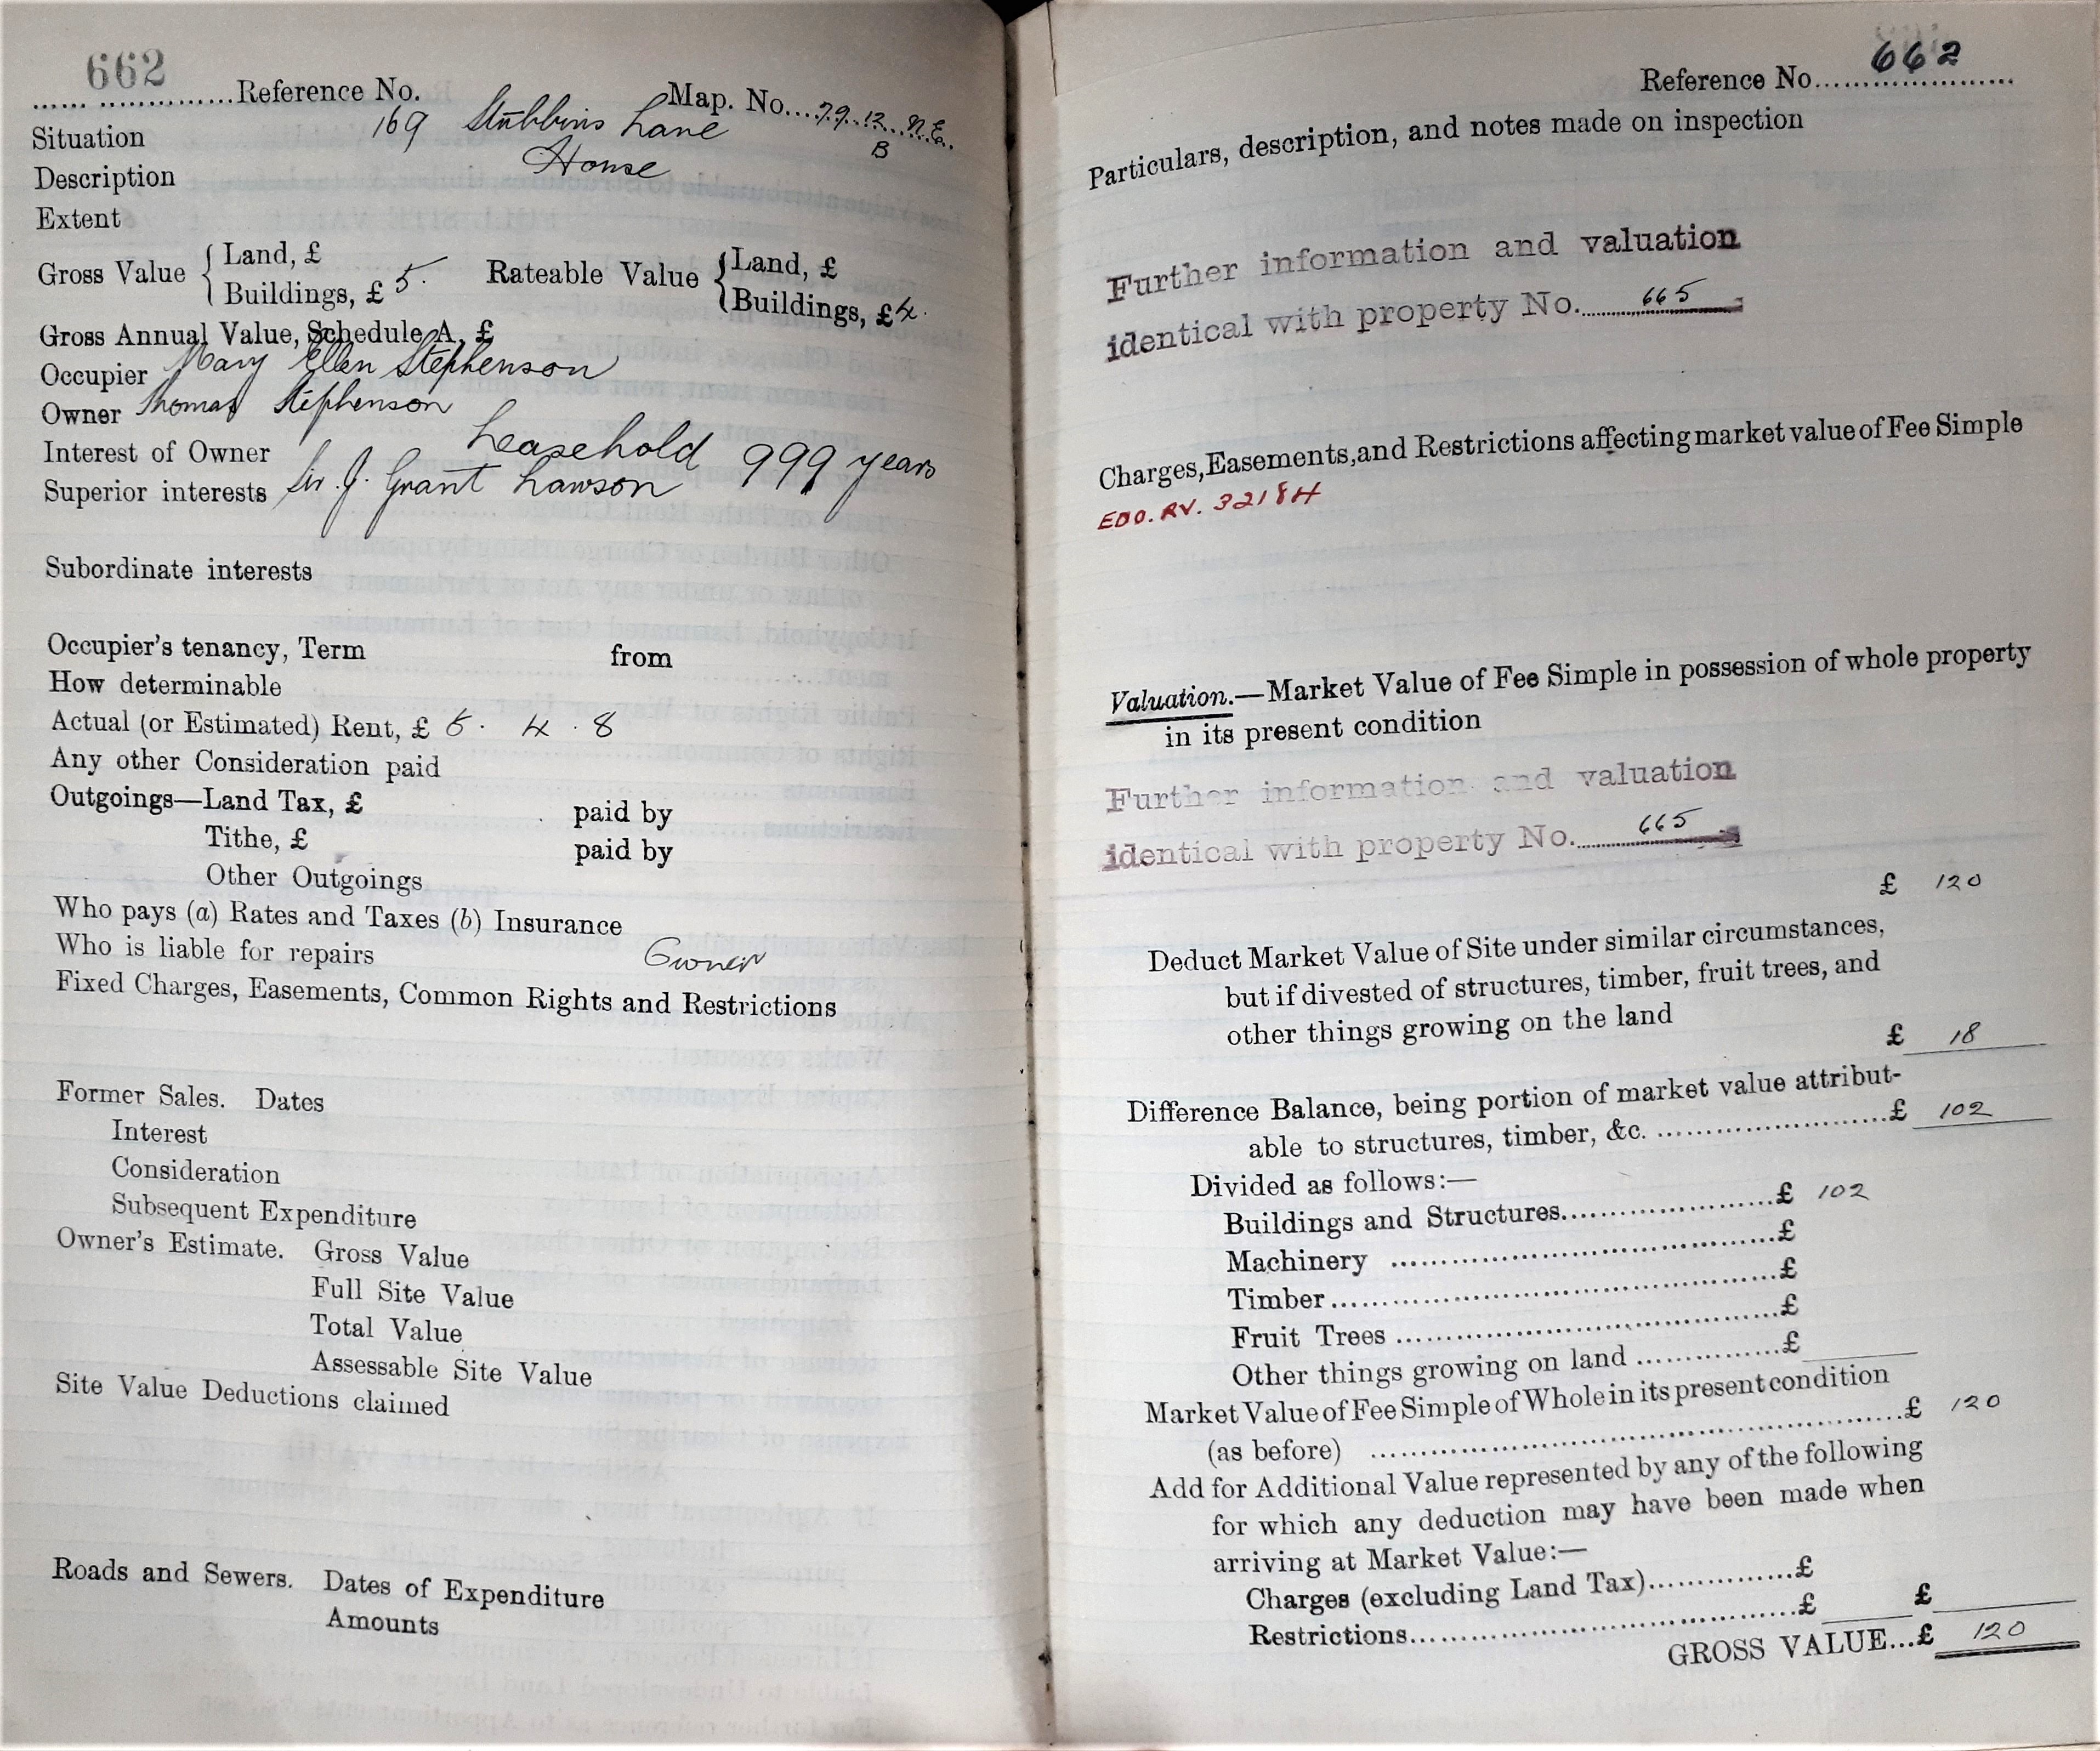 662
Reference No. Map. No. 79. 12. N.E.
Situation 169 Stubbins Lane B
Description House
Extent
Gross Value { Land, £ Rateable Value { Land, £
Buildings, £ 5. Buildings, £ 4.
Gross Annual Value, Schedule A, £
Occupier Mary Ellen Stephenson
Owner Thomas Stephenson
Interest of Owner Leasehold 999 years
Superior interests Sir J. Grant Lawson
Subordinate interests
Occupier's tenancy, Term from
How determinable
Actual (or Estimated) Rent, £ 5. 4. 8
Any other Consideration paid
Outgoings—Land Tax, £ paid by
Tithe, £ paid by
Other Outgoings
Who pays (a) Rates and Taxes (b) Insurance
Who is liable for repairs Owner
Fixed Charges, Easements, Common Rights and Restrictions
Former Sales. Dates
Interest
Consideration
Subsequent Expenditure
Owner's Estimate. Gross Value
Full Site Value
Total Value
Assessable Site Value
Site Value Deductions claimed
Roads and Sewers. Dates of Expenditure
Amounts
Reference No. 662
Particulars, description, and notes made on inspection
Further information and valuation
identical with property No. 665
Charges, Easements, and Restrictions affecting market value of Fee Simple
EDO. RV. 3218H
Valuation.—Market Value of Fee Simple in possession of whole property
in its present condition
Further information and valuation
identical with property No. 665
£ 120
Deduct Market Value of Site under similar circumstances,
but if divested of structures, timber, fruit trees, and
other things growing on the land
£ 18
Difference Balance, being portion of market value attribut-
able to structures, timber, &c. £ 102
Divided as follows:—
Buildings and Structures £ 102
Machinery £
Timber £
Fruit Trees £
Other things growing on land £
Market Value of Fee Simple of Whole in its present condition
(as before) £ 120
Add for Additional Value represented by any of the following
for which any deduction may have been made when
arriving at Market Value:—
Charges (excluding Land Tax) £
Restrictions £ £
GROSS VALUE...£ 120